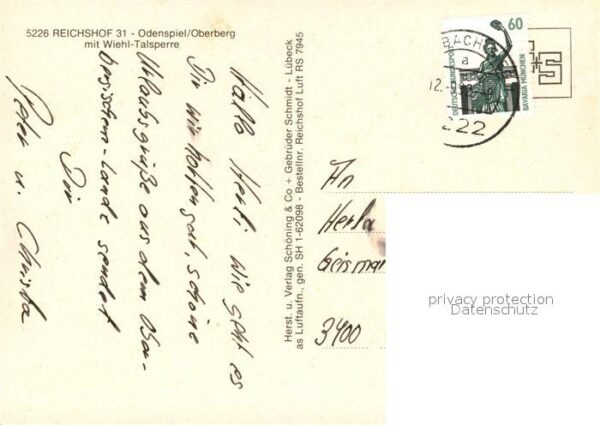 5226 REICHSHOF 31 - Odenspiel/Oberberg
mit Wiehl-Talsperre
Hallo Herli wie geht es
Dir wir hoffen gut, schöne
Urlaubsgrüße aus dem Ober-
bergischen-Lande sendet
Dir
Peter u. Christa
Herst. u. Verlag Schöning & Co + Gebrüder Schmidt - Lübeck
as Luftaufn., gen. SH 1-62098 - Bestellnr. Reichshof Luft RS 7945
60
DEUTSCHE BUNDESPOST
BAVARIA MÜNCHEN
BACH
a
12.
222
An
Herta
Geismar
3400
privacy protection
Datenschutz